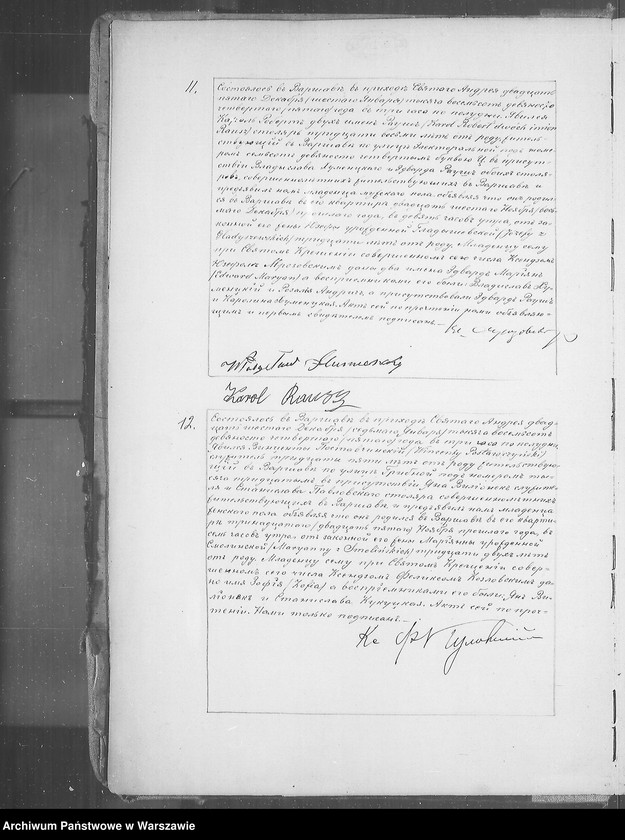 11.
Состоялось въ Варшавѣ въ приходѣ Святаго Андрея двадцать
пятаго Декабря /шестаго Января/ тысяча восемьсотъ девяносто
четвертаго /пятаго/ года въ три часа по полудни. Явился
Кароль Робертъ двухъ именъ Раушъ /Karol Robert dwóch imion
столяръ тридцати восьми лѣтъ отъ роду, житель-
ствующій въ Варшавѣ по улицѣ Электоральной подъ номе-
ромъ семьсотъ девяносто четвертымъ буквою въ присут-
ствіи Владислава Хуменецкаго и Эдварда Раушъ обоихъ столя-
ровъ, совершеннолѣтнихъ жительствующихъ въ Варшавѣ и
предъявилъ намъ младенца мужескаго пола, объявляя что онъ родил-
ся въ Варшавѣ въ его квартирѣ двадцать шестаго Ноября /вось-
маго Декабря/ прошлаго года, въ девять часовъ утра, отъ за-
конной его жены Юзефы урожденной Владышевской /Józefy z
тридцати лѣтъ отъ роду. Младенцу сему
при Святомъ Крещеніи совершенномъ сего числа Ксендзомъ
даны два имена Эдвардъ Марьянъ
/Edward Maryan/ а воспріемниками его были Владиславъ Ху-
менецкій и Розалія Андрихъ, а присутствовали Эдвардъ Раушъ
и Каролина Хуменецкая. Актъ сей по прочтеніи нами объявляю-
щимъ и первымъ свидѣтелемъ подписанъ.—
Кс.
Karol Rausz
12.
Состоялось въ Варшавѣ въ приходѣ Святаго Андрея двад-
цать шестаго Декабря /седьмаго Января/ тысяча восемьсотъ
девяносто четвертаго /пятаго/ года, въ три часа по полудни.
Явился Винценты Поставничій /Wincenty
служитель тридцати пяти лѣтъ отъ роду жительствую-
щій въ Варшавѣ по улицѣ Грибной подъ номеромъ ты-
сяча тридцатымъ въ присутствіи Яна служите-
ля и Станислава Павловскаго столяра совершеннолѣтнихъ
жительствующихъ въ Варшавѣ, и предъявилъ намъ младенца
женскаго пола объявляя что онъ родился въ Варшавѣ въ его кварти-
рѣ тринадцатаго /двадцать пятаго/ Ноября прошлаго года, въ
семь часовъ утра, отъ законной его жены Марьянны урожденной
Смолинской /Maryanny z Smolińskich/ тридцати двухъ лѣтъ
отъ роду. Младенцу сему при Святомъ Крещеніи совер-
шенномъ сего числа Ксендзомъ Феликсомъ Козловскимъ да-
но имя Зофія /Zofia/ а воспріемниками его были, Янъ
и Станислава Кукуцкая. Актъ сей по проч-
теніи Нами только подписанъ.—
Кс
Archiwum Państwowe w Warszawie